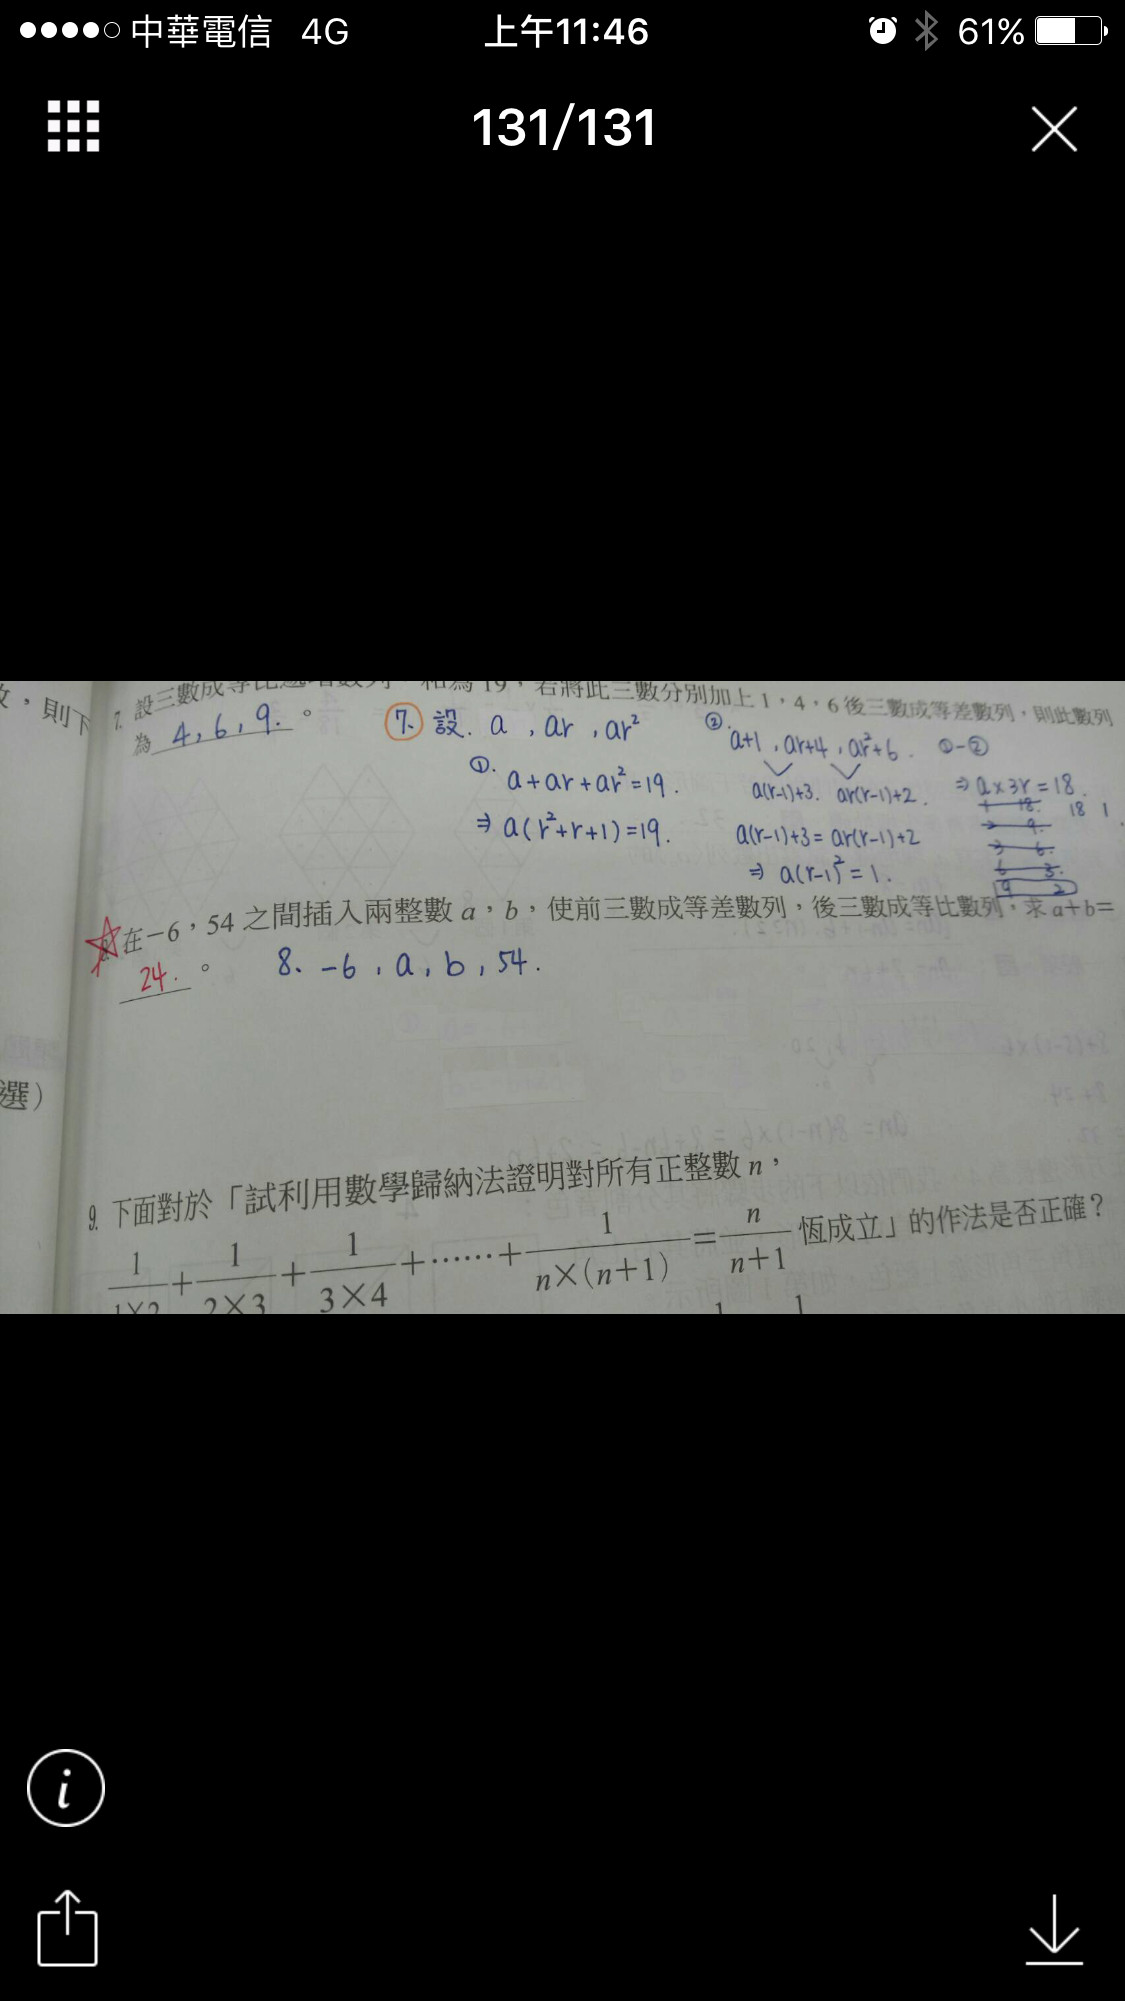 中華電信 4G 上午11:46 61%
131/131
，則下
7. 設三數成等比遞增數列，和為19，若將此三數分別加上1，4，6後三數成等差數列，則此數列
為 4, 6, 9. 。
7. 設. a , ar , ar²
①. a + ar + ar² = 19 .
⇒ a(r²+r+1) = 19 .
②. a+1 , ar+4 , ar²+6 .
a(r-1)+3. ar(r-1)+2 .
a(r-1)+3 = ar(r-1)+2
⇒ a(r-1)² = 1 .
①-②
⇒ a×3r = 18 .
1 18. 18 1
9.
3 6.
6 3.
9 2
8. 在－6，54 之間插入兩整數 a，b，使前三數成等差數列，後三數成等比數列，求 a＋b＝
24. 。
8. -6 , a , b , 54 .
選）
9. 下面對於「試利用數學歸納法證明對所有正整數 n，
1/1×2 + 1/2×3 + 1/3×4 + …… + 1/n×(n+1) = n/n+1 恆成立」的作法是否正確？
i